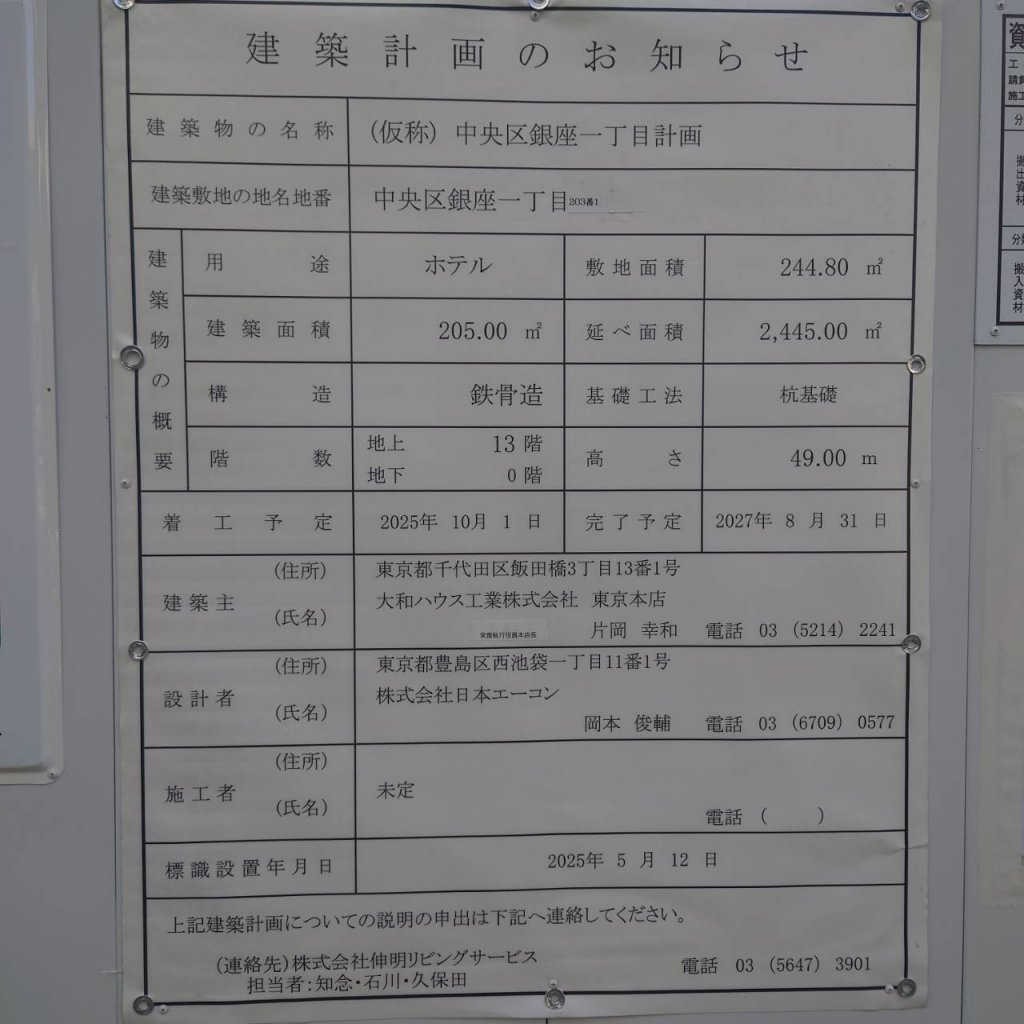 建築計画のお知らせ
建築物の名称 (仮称) 中央区銀座一丁目計画
建築敷地の地名地番 中央区銀座一丁目203番1
建築物の概要
用途 ホテル 敷地面積 244.80 ㎡
建築面積 205.00 ㎡ 延べ面積 2,445.00 ㎡
構造 鉄骨造 基礎工法 杭基礎
階数 地上 13 階 高さ 49.00 m
地下 0 階
着工予定 2025年 10月 1 日 完了予定 2027年 8 月 31 日
建築主 (住所) 東京都千代田区飯田橋3丁目13番1号
(氏名) 大和ハウス工業株式会社 東京本店
常務執行役員本店長 片岡 幸和 電話 03 (5214) 2241
設計者 (住所) 東京都豊島区西池袋一丁目11番1号
(氏名) 株式会社日本エーコン
岡本 俊輔 電話 03 (6709) 0577
施工者 (住所)
(氏名) 未定
電話 ( )
標識設置年月日 2025年 5 月 12 日
上記建築計画についての説明の申出は下記へ連絡してください。
(連絡先)株式会社伸明リビングサービス 電話 03 (5647) 3901
担当者:知念・石川・久保田
資
工
請負
施工
分
搬出資材
分類
搬入資材